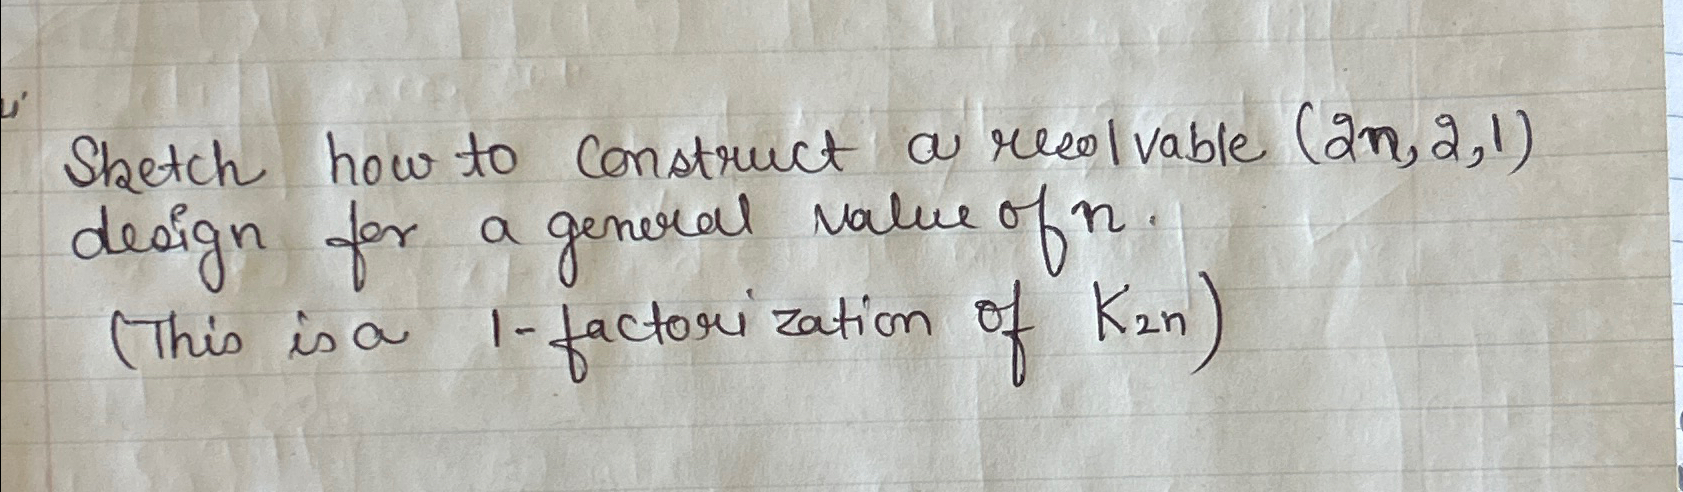 Sketch how to construct a resolvable (2n,2,1)
design for a general value of n.
(This is a 1-factorization of K2n)